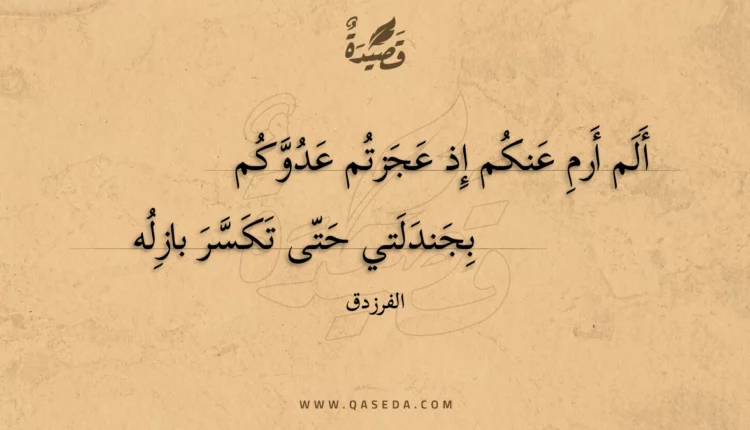 قَصِيدَةٌ
أَلَم أَرمِ عَنكُم إِذ عَجَزتُم عَدُوَّكُم
بِجَندَلَتي حَتّى تَكَسَّرَ بازِلُه
الفرزدق
WWW.QASEDA.COM